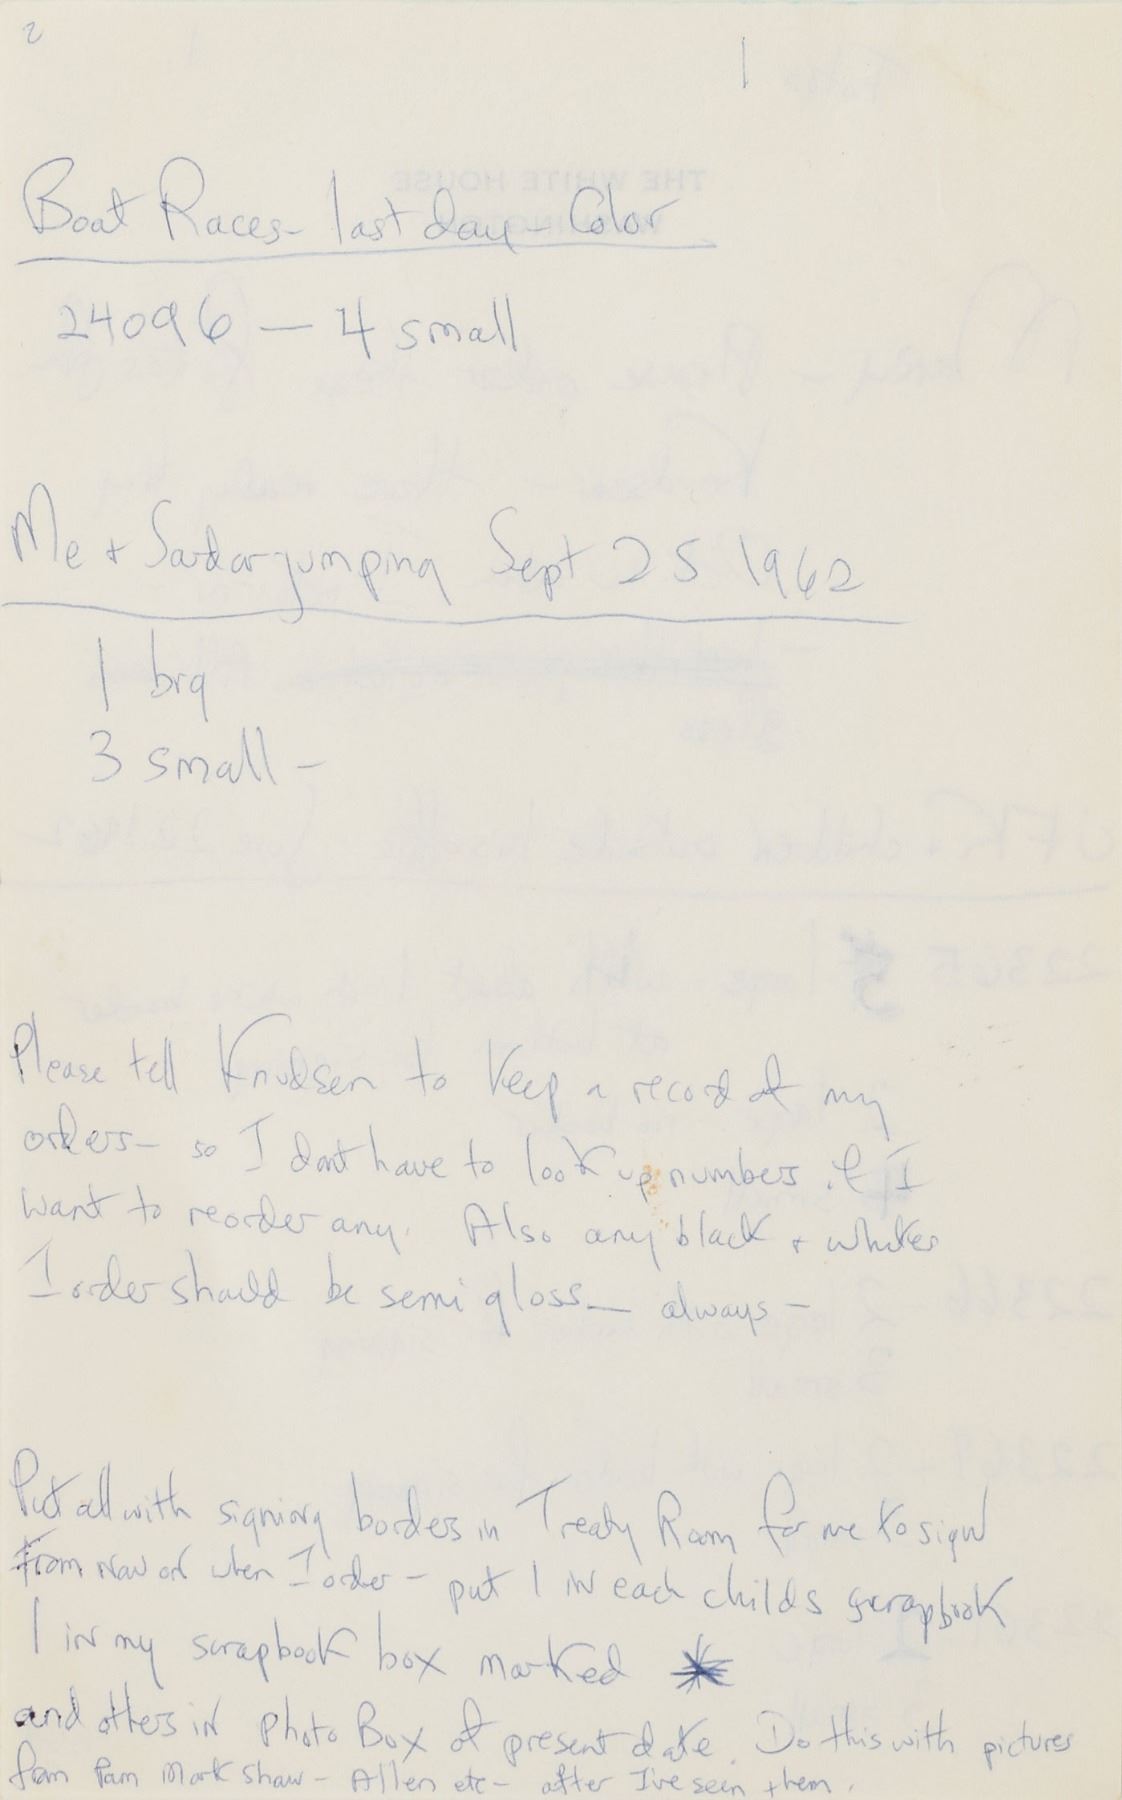 2
1
Boat Races - last day - Color
24096 — 4 small
Me + Sardar jumping Sept 25 1962
1 big
3 small -
Please tell Knudsen to keep a record of my
orders - so I dont have to look up numbers if I
want to reorder any. Also any black + whites
I order should be semi gloss — always -
Put all with signing borders in Treaty Room for me to sign
From now on when I order - put 1 in each childs scrapbook
1 in my scrapbook box marked *
and others in Photo Box of present date. Do this with pictures
from Pam Mark Shaw - Allen etc - after I've seen them.
THE WHITE HOUSE